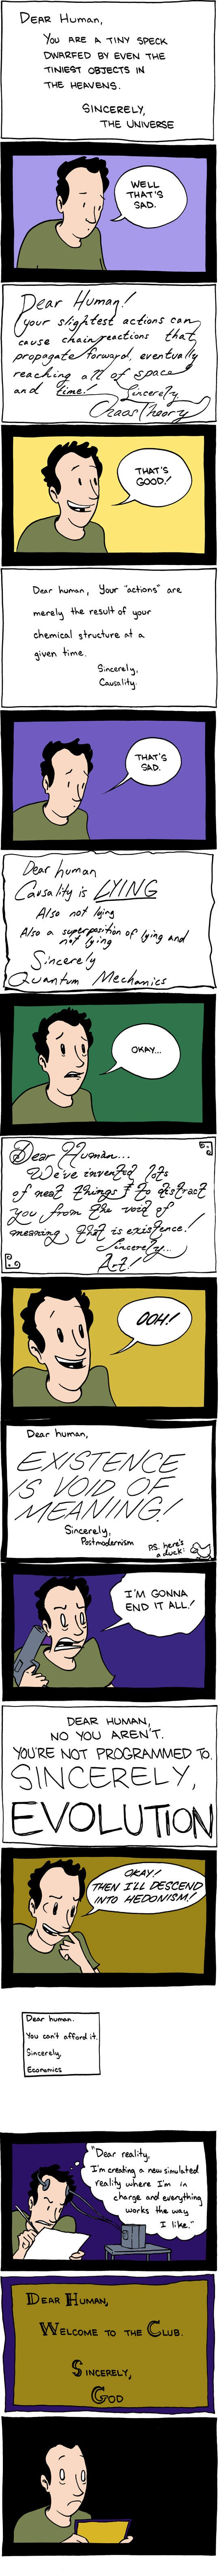 Dear Human,
You are a tiny speck
dwarfed by even the
tiniest objects in
the heavens.
Sincerely,
The Universe
Well
that's
sad.
Dear Human!
your slightest actions can
cause chain reactions that
propagate forward, eventually
reaching all of space
and time!
Sincerely,
Chaos Theory
That's
good!
Dear human, Your "actions" are
merely the result of your
chemical structure at a
given time.
Sincerely,
Causality.
That's
sad.
Dear human
Causality is LYING
Also not lying
Also a superposition of lying and
not lying
Sincerely
Quantum Mechanics
Okay...
Dear Human...
We've invented lots
of neat things to distract
you from the void of
meaning that is existence!
Sincerely...
Art!
Ooh!
Dear human,
EXISTENCE
IS VOID OF
MEANING!
Sincerely,
Postmodernism
P.S. here's
a duck:
I'm gonna
end it all!
Dear Human,
No you aren't.
You're not programmed to.
Sincerely,
EVOLUTION
Okay!
Then I'll descend
into hedonism!
Dear human.
You can't afford it.
Sincerely,
Economics
"Dear reality,
I'm creating a new simulated
reality where I'm in
charge and everything
works the way
I like."
Dear Human,
Welcome to the Club.
Sincerely,
God